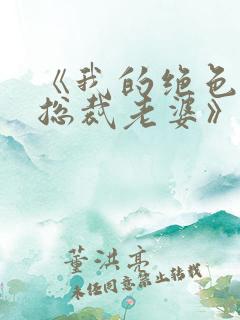 《我的绝色
总裁老婆》
董洪亮
未经同意禁止转载